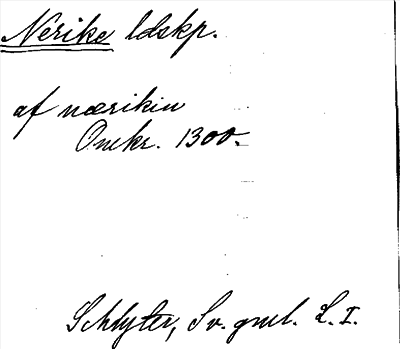 Nerike ldskp.
af nærikiu
Omkr. 1300.
Schlyter, Sv. gml. L. I.